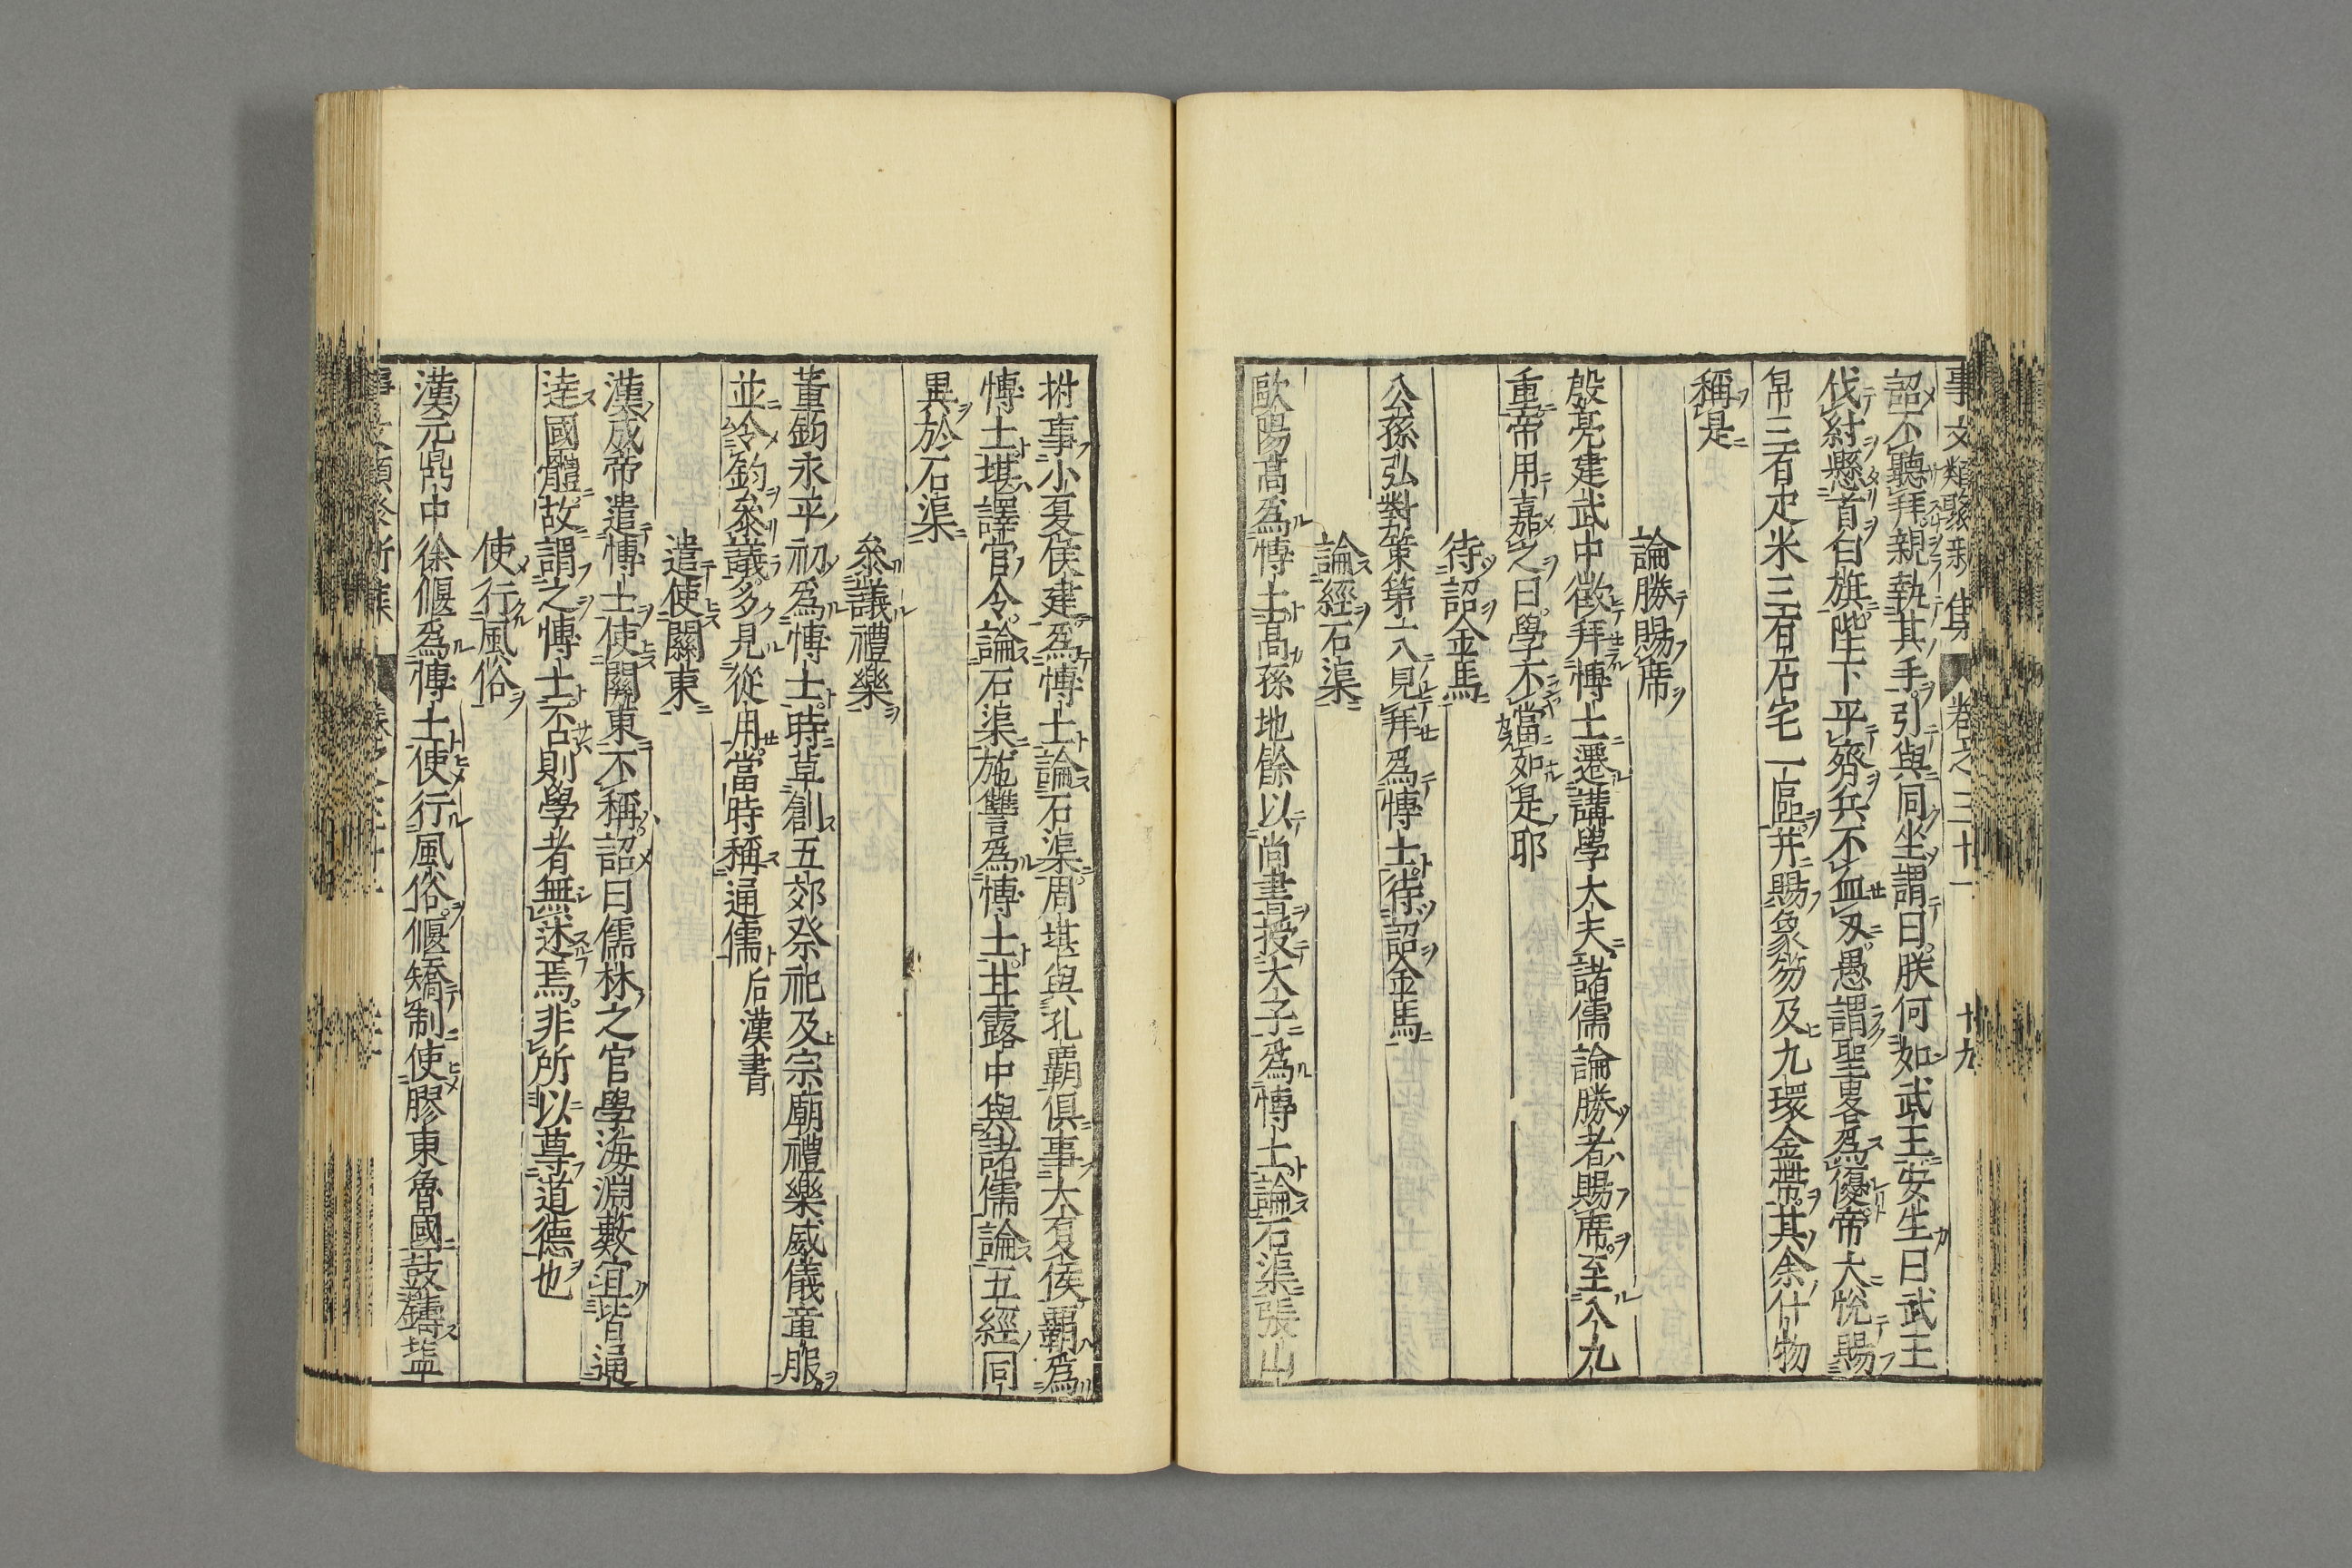 事文類聚新集 卷之三十一 十九
詔不聽拜親執其手引與同坐謂曰朕何如武王安生曰武王
伐紂懸首白旗陛下平齊兵不血刃愚謂聖畧爲優帝大悅賜
帛三百疋米三百石宅一區并賜象笏及九環金帶其余什物
稱是
論勝賜席
殷亮建武中徵拜博士遷講學大夫諸儒論勝者賜席至八九
重帝用嘉之曰學不當如是耶
待詔金馬
公孫弘對策第一入見拜爲博士待詔金馬
論經石渠
歐陽髙爲博士髙孫地餘以尚書授太子爲博士論石渠張山
拊事小夏侯建爲博士論石渠周堪與孔霸俱事大夏侯霸爲
博士堪譯官令論石渠施讐爲博士甘露中與諸儒論五經同
異於石渠
叅議禮樂
董鈞永平初爲博士時草創五郊祭祀及宗廟禮樂威儀章服
並令鈞叅議多見從用當時稱通儒 后漢書
遣使關東
漢成帝遣博士使關東不稱詔曰儒林之官學海淵藪宜皆通
達國體故謂之博士否則學者無述焉非所以尊道德也
使行風俗
漢元鼎中徐偃爲博士使行風俗偃矯制使膠東魯國鼓鑄塩